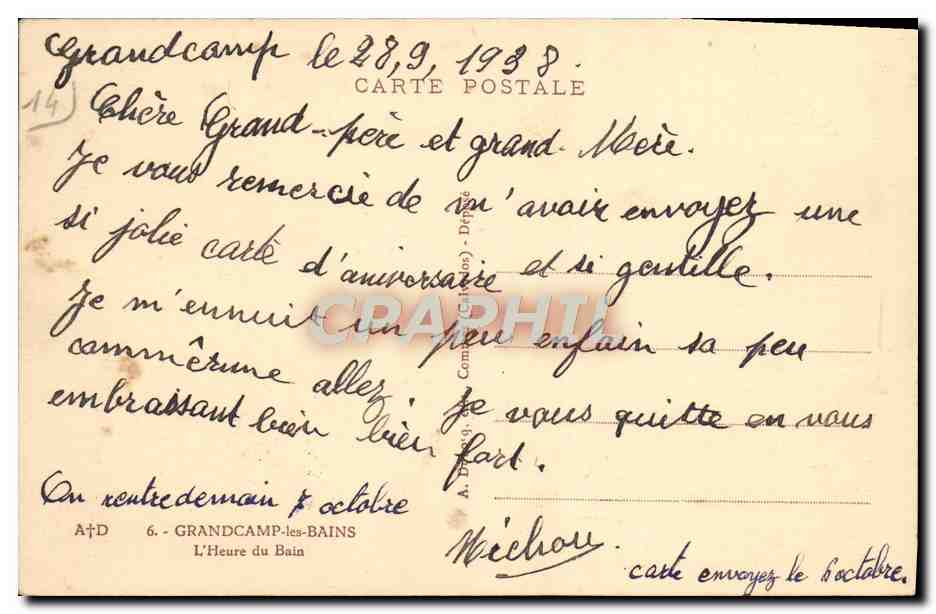 Grandcamp le 28,9, 1938.
CARTE POSTALE
14)
Chère Grand-père et grand-Mère.
Je vous remercie de m'avoir envoyez une
si jolie carte d'aniversaire et si gentille.
Je m'ennuit un peu enfain sa peu
commêrune allez. Je vous quitte en vous
embrassant bien bien fort.
On rentre demain 7 octobre
Michou.
carte envoyez le 6 octobre.
A†D 6. - GRANDCAMP-les-BAINS
L'Heure du Bain
(Calvados) - Déposé
CPARPHIL